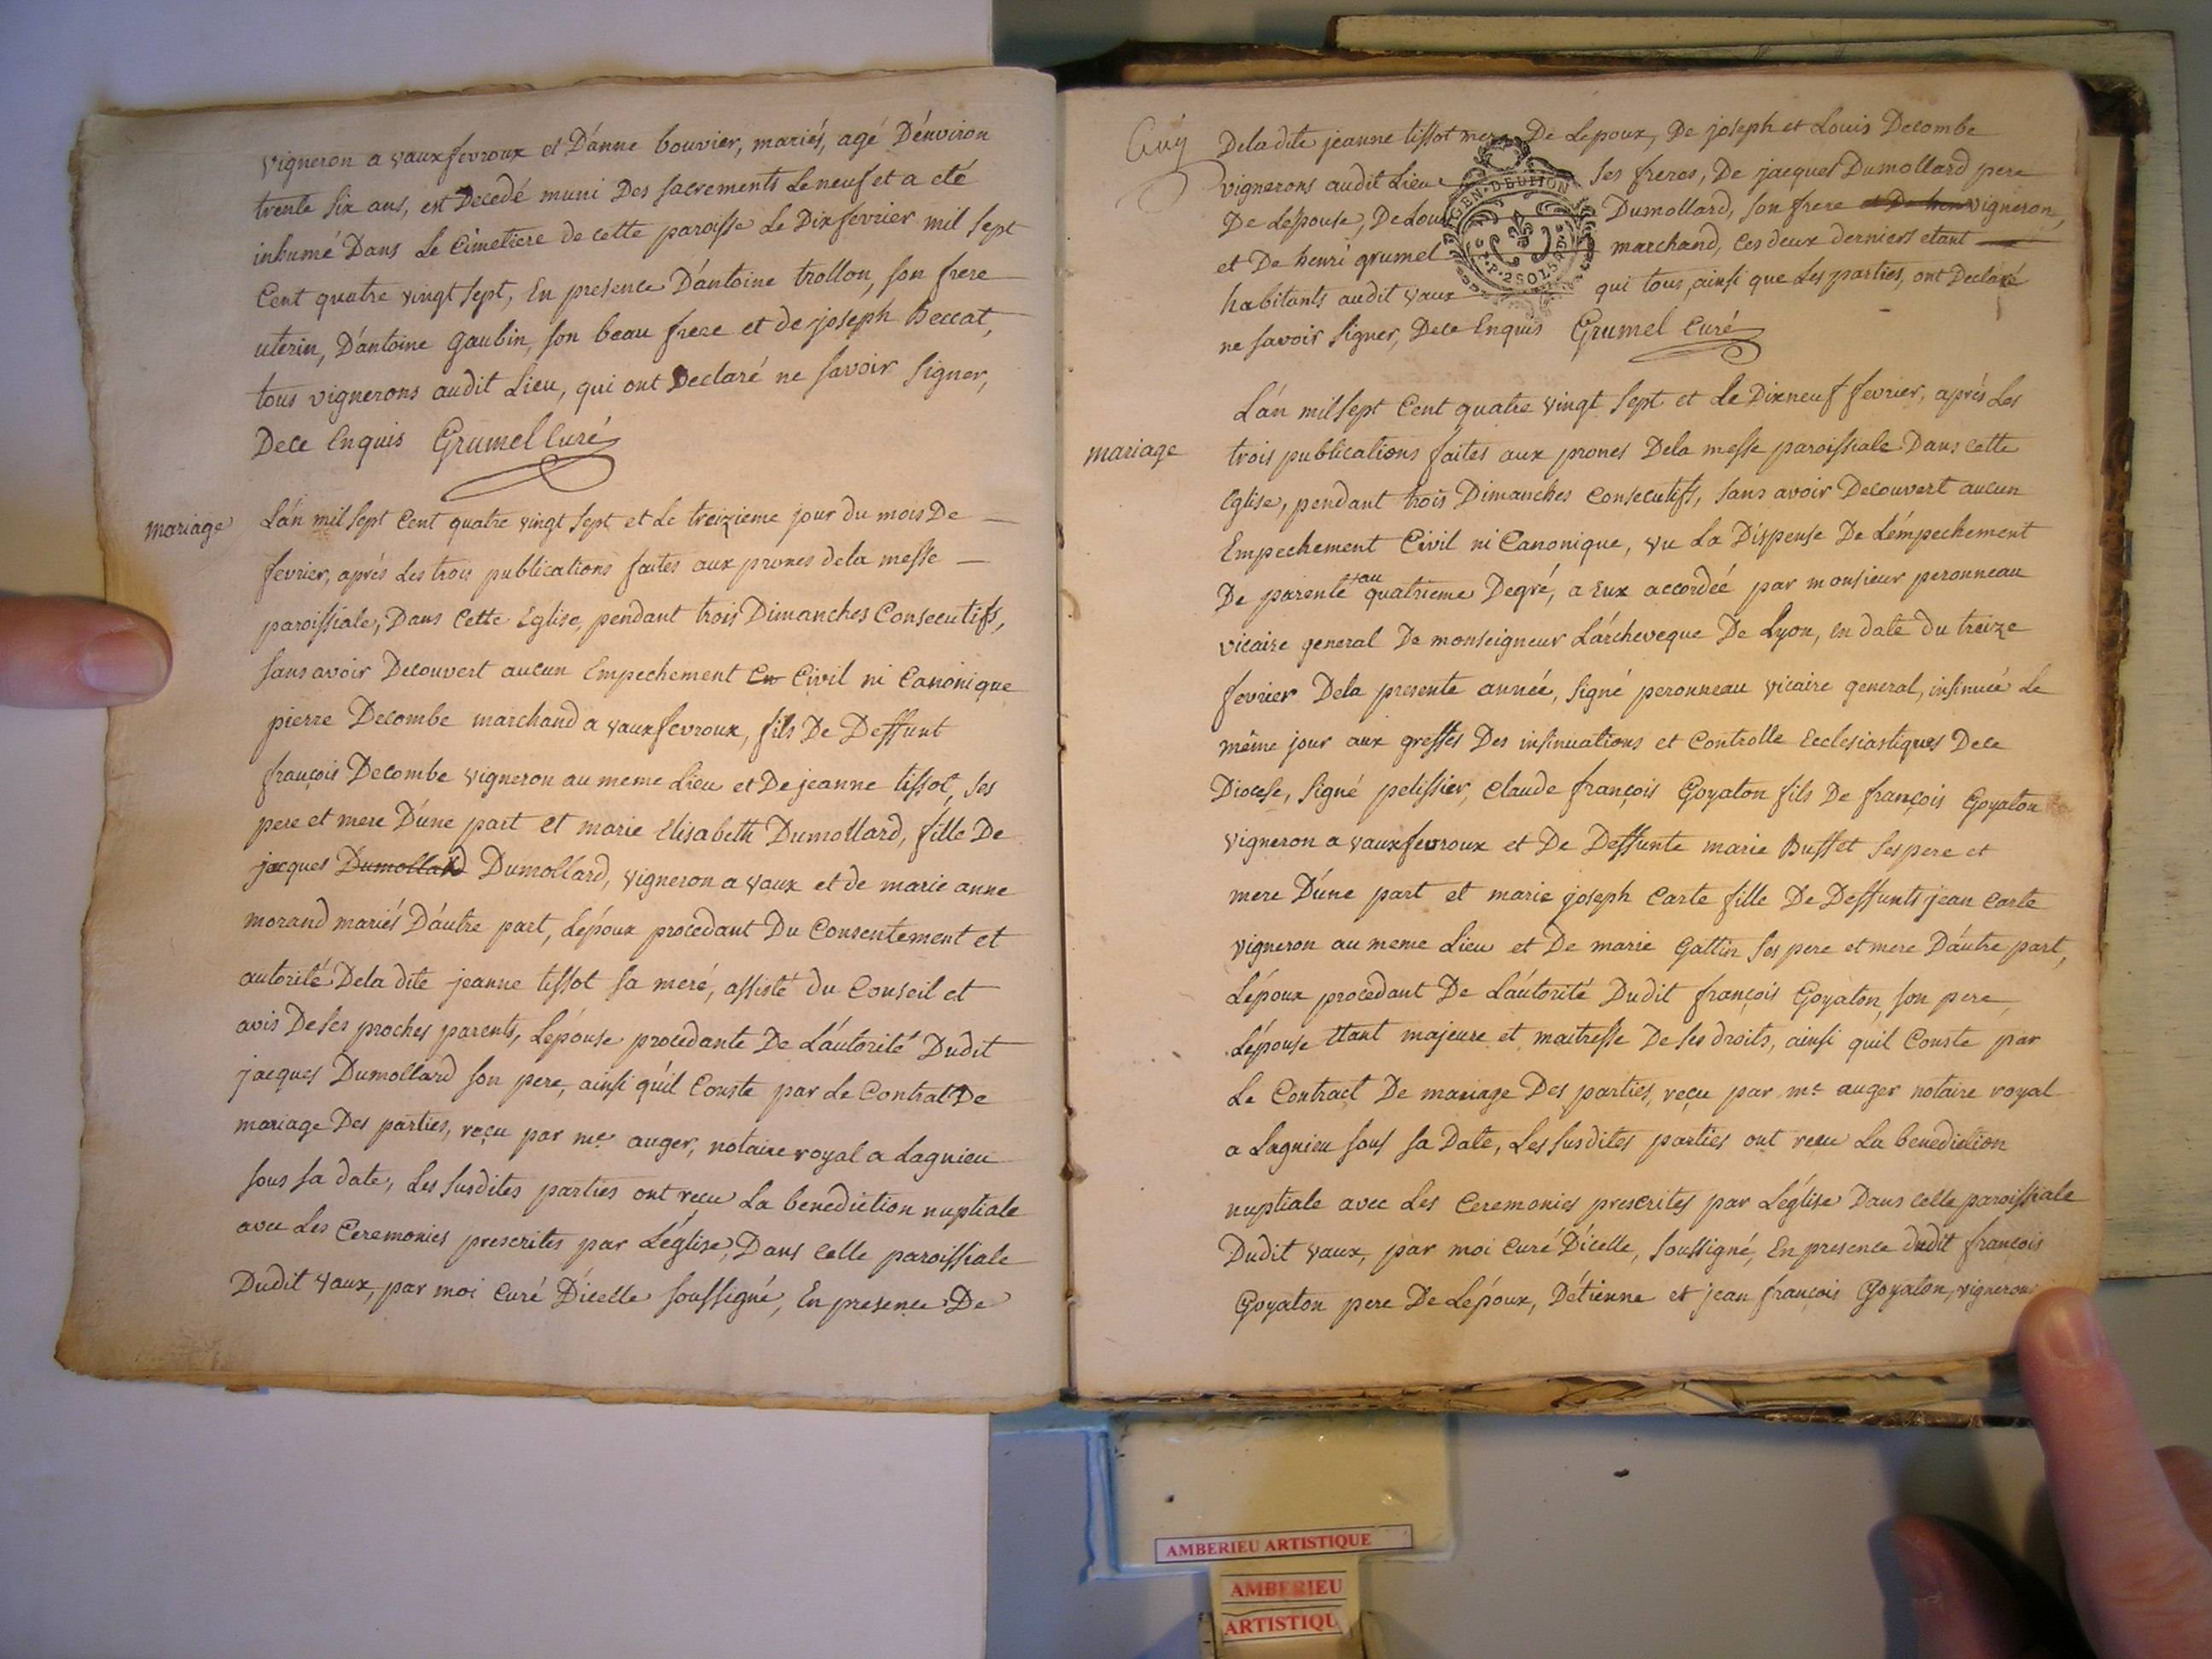 vigneron a vauxfevroux et D'anne bouvier, mariés, agé D'environ
trente six ans, est Decedé muni Des sacrements Le neuf et a eté
inhumé Dans Le Cimetiere de cette paroisse Le Dix fevrier mil sept
Cent quatre vingt sept, En presence D'antoine trollon, son frere
uterin, D'antoine gaubin, son beau frere et de joseph Beccat,
tous vignerons audit Lieu, qui ont Declaré ne savoir signer,
Dece Enquis Grumel Curé
mariage
L'an mil sept Cent quatre vingt sept et Le treizieme jour du mois De
fevrier, aprés Les trois publications faites aux prones dela messe
paroissiale, Dans Cette Eglise, pendant trois Dimanches Consecutifs,
sans avoir Decouvert aucun Empechement Civil ni Canonique
pierre Decombe marchand a vauxfevroux, fils De Deffunt
françois Decombe vigneron au meme Lieu et De jeanne tissot, ses
pere et mere D'une part et marie Elisabeth Dumollard, fille De
jacques Dumollard Dumollard, vigneron a vaux et de marie anne
morand mariés D'autre part, L'époux procedant Du Consentement et
autorité Dela dite jeanne tissot sa meré, assisté du Conseil et
avis De ses proches parents, L'epouse procedante De L'autorité Dudit
jacques Dumollard son pere, ainsi qu'il Conste par Le Contrat De
mariage Des parties, reçu par me auger, notaire royal a Lagnieu
sous sa date, Les susdites parties ont reçu La benediction nuptiale
avec Les Ceremonies prescrites par L'église, Dans celle paroissiale
Dudit vaux, par moi Curé D'icelle soussigné, En presence De
Dela dite jeanne tissot mere De Lepoux, De joseph et Louis Decombe
vignerons audit Lieu ses freres, De jacques Dumollard pere
De Lepouse, De Louis Dumollard, son frere et De hen vigneron,
et De henri grumel marchand, Ces deux derniers etant
habitants audit vaux qui tous, ainsi que Les parties, ont Declaré
ne savoir signer, Dece Enquis Grumel Curé
GEN. DE DIJON
2 SOLS
mariage
L'an mil sept Cent quatre vingt sept et Le Dixneuf fevrier, aprés Les
trois publications faites aux prones Dela messe paroissiale Dans cette
Eglise, pendant trois Dimanches Consecutifs, sans avoir Decouvert aucun
Empechement Civil ni Canonique, vu La Dispense De L'émpechement
De parenté au quatrieme Degré, a Eux accordée par monsieur peronneau
vicaire general De monseigneur L'archeveque De Lyon, en date du treize
fevrier Dela presente année, signé peronneau vicaire general, insinuée Le
même jour aux greffes Des insinuations et Controlle Ecclesiastiques Dece
Diocese, signé pelissier, Claude françois Goyaton fils De françois Goyaton
vigneron a vauxfevroux et De Deffunte marie Buffet ses pere et
mere D'une part et marie joseph Carte fille De Deffunts jean Carte
vigneron au meme Lieu et De marie Gattier ses pere et mere D'autre part,
L'époux procedant De L'autorité Dudit françois Goyaton, son pere,
L'épouse Etant majeure et maitresse De ses droits, ainsi qu'il Conste par
Le Contract De mariage Des parties, reçu par me auger notaire royal
a Lagnieu sous sa Date, Les susdites parties ont reçu La benediction
nuptiale avec Les Ceremonies prescrites par L'église Dans celle paroissiale
Dudit vaux, par moi Curé D'icelle, soussigné, En presence dudit françois
Goyaton pere De L'époux, D'étienne et jean françois Goyaton, vignerons
AMBERIEU ARTISTIQUE
AMBERIEU
ARTISTIQU